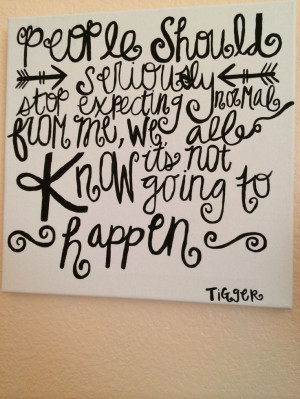 People Should
seriously
stop expecting normal
from me, we all
Know it's not
going to
happen
Tigger